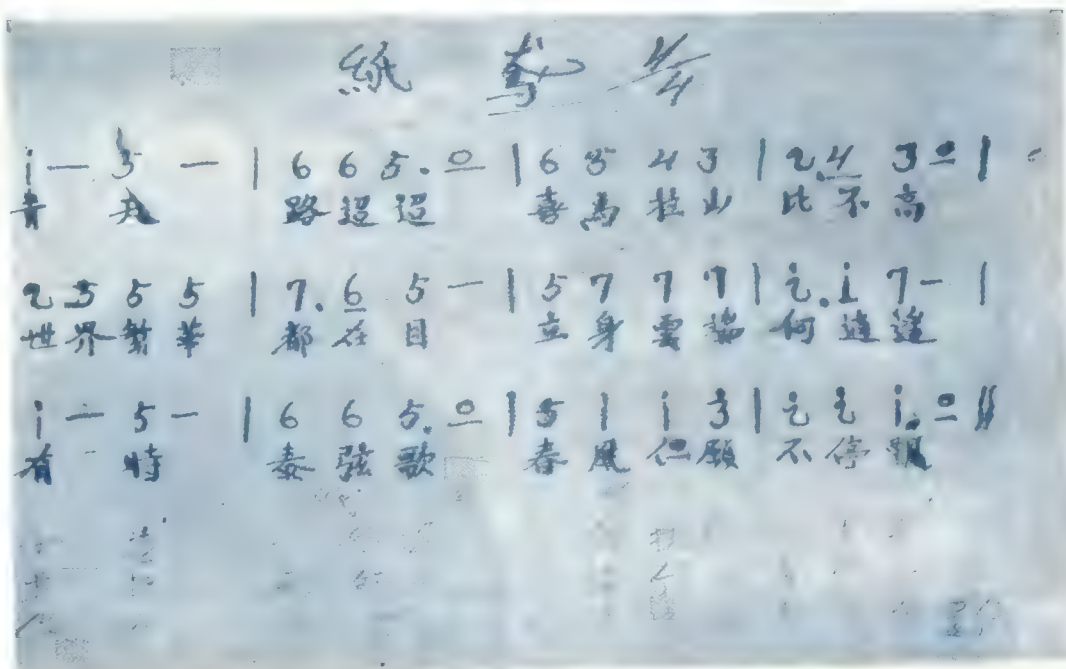 紙鳶 4/4
i — 5 — | 6 6 5. 0 | 6 5 4 3 | 2. 4 3 0 |
青 路迢迢 喜馬拉山 比不高
2 3 5 5 | 7. 6 5 — | 5 7 7 7 | i. i 7 — |
世界繁華 都在目 立身雲端 何逍遙
i — 5 — | 6 6 5. 0 | 5 1 i 3 | i i i. 0 ||
有時 奏弦歌 春風仁願 不停飄